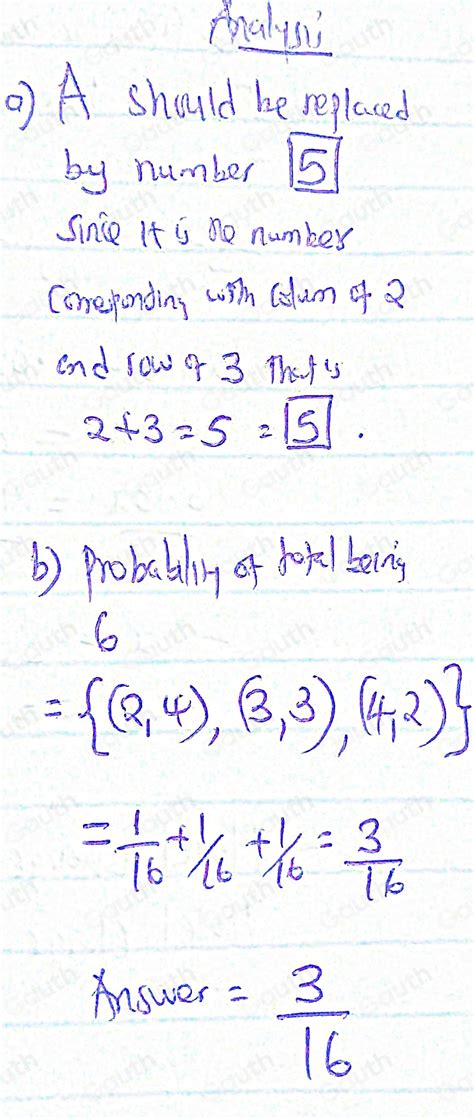 Analysis
a) A should be replaced
by number 5
Since it is the number
Corresponding with colum of 2
and row of 3 That is
2+3=5 = 5 .
b) Probability of total being
6
= {(2,4), (3,3), (4,2)}
= 1/16 + 1/16 + 1/16 = 3/16
Answer = 3/16